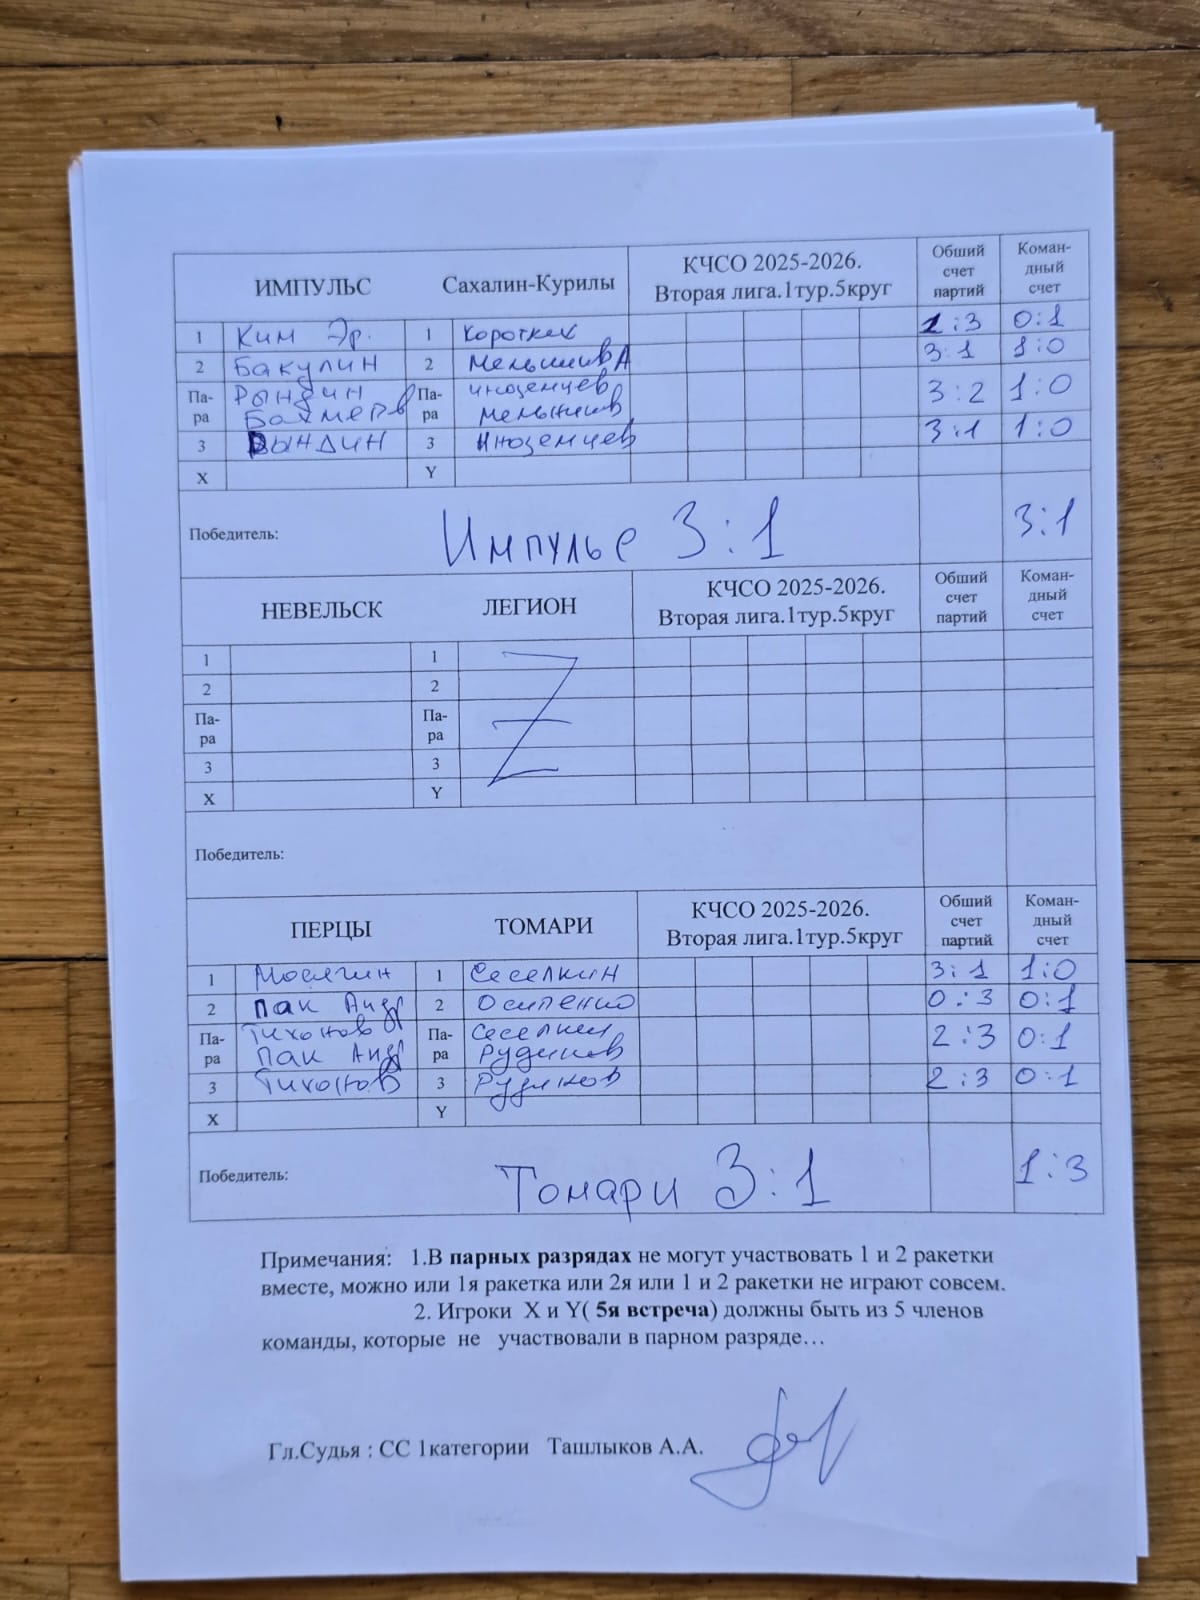 ИМПУЛЬС Сахалин-Курилы КЧСО 2025-2026. Вторая лига.1тур.5круг Обший счет партий Коман-дный счет
1 Ким Эр. 1 Коротких 1:3 0:1
2 Бакулин 2 Мельников А 3:1 1:0
Па-ра Рындин Иноземцев 3:2 1:0
Па-ра Мельников
3 Рындин 3 Иноземцев 3:1 1:0
X Y
Победитель: Импульс 3:1 3:1
НЕВЕЛЬСК ЛЕГИОН КЧСО 2025-2026. Вторая лига.1тур.5круг Обший счет партий Коман-дный счет
1 1
2 2
Па-ра Па-ра
3 3
X Y
Победитель:
ПЕРЦЫ ТОМАРИ КЧСО 2025-2026. Вторая лига.1тур.5круг Обший счет партий Коман-дный счет
1 Мосягин 1 Сеселкин 3:1 1:0
2 Пак Андр 2 Осипенко 0:3 0:1
Па-ра Тихонов Па-ра Сеселкин 2:3 0:1
Пак Андр Рудиков
3 Тихонов 3 Рудиков 2:3 0:1
X Y
Победитель: Томари 3:1 1:3
Примечания: 1.В парных разрядах не могут участвовать 1 и 2 ракетки
вместе, можно или 1я ракетка или 2я или 1 и 2 ракетки не играют совсем.
2. Игроки X и Y( 5я встреча) должны быть из 5 членов
команды, которые не участвовали в парном разряде…
Гл.Судья : СС 1категории Ташлыков А.А.